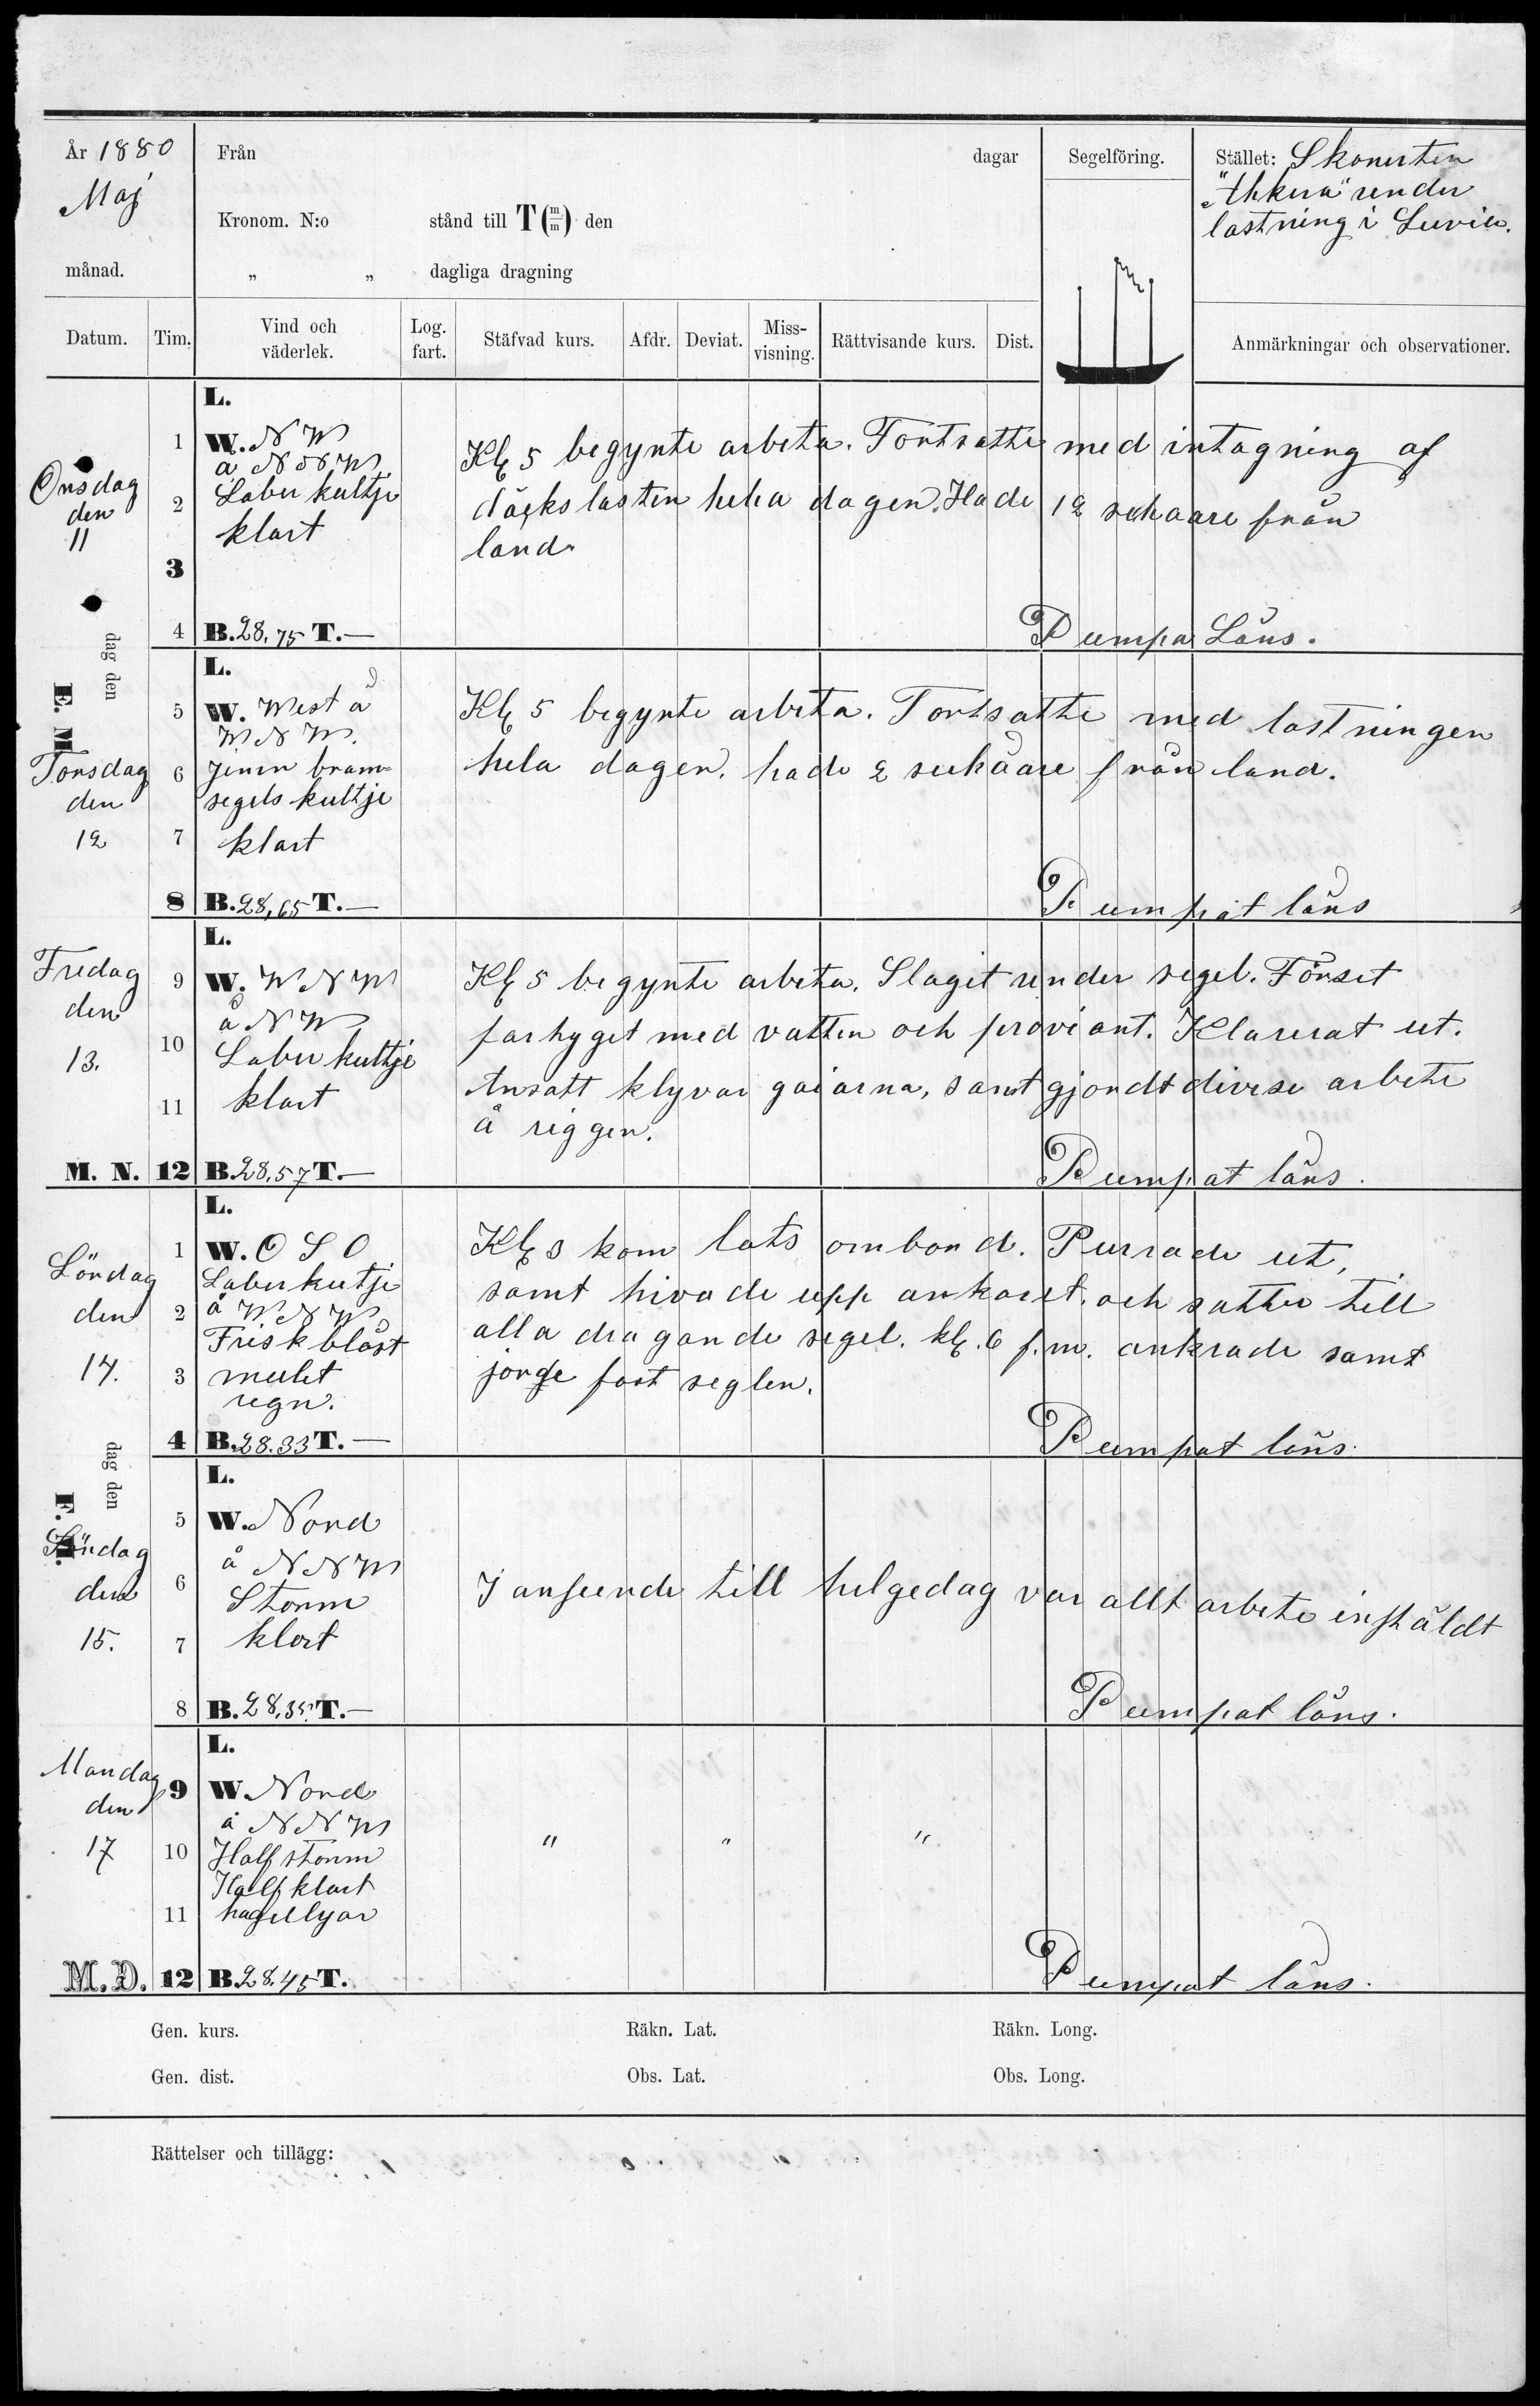 År 1880
Maj
månad.
Från dagar
Kronom. N:o stånd till T (m/m) den
„ „ dagliga dragning
Segelföring.
Stället: Skonerten
under
lastning i Luvia.
Datum. Tim. Vind och väderlek. Log. fart. Stäfvad kurs. Afdr. Deviat. Miss-visning. Rättvisande kurs. Dist. Anmärkningar och observationer.
Onsdag
den
11
1
2
3
4
L.
W. N W
å N N W
Laber kultje
klart
B. 28,75 T. —
Kl. 5 begynte arbeta. Fortsatte med intagning af
däckslasten hela dagen. Hade 12 från
land.
Pumpa Läns.
dag den
E. M.
Torsdag
den
12
5
6
7
8
L.
W. West å
W N W.
Jemn bram-
segels kultje
klart
B. 28,65 T. —
Kl. 5 begynte arbeta. Fortsatte med lastningen
hela dagen. hade 2 från land.
Pumpat läns
Fredag
den
13.
9
10
11
M. N. 12
L.
W. W N W
å N W
Laber kultje
klart
B. 28.57 T. —
Kl. 5 begynte arbeta. Slagit under segel. Förset
farkyget med vatten och proviant. Klarerat ut.
Ansatt klyvar gaiarna, samt gjordt diverse arbete
å riggen.
Pumpat läns.
Lördag
den
14.
1
2
3
4
L.
W. O S O
Laber kutje
å W N W
Frisk blåst
mulet
regn.
B. 28.33 T. —
Kl. 3 kom lots ombord. Purrade ut,
samt hivade upp ankaret. och satte till
alla dragande segel. kl. 6 f.m. ankrade samt
jorde fast seglen.
Pumpat läns.
dag den
F. M.
Söndag
den
15.
5
6
7
8
L.
W. Nord
å N N W
Storm
klart
B. 28,35 T. —
I anseende till helgedag var allt arbete instäldt
Pumpat läns.
Mandag
den
17
9
10
11
M. D. 12
L.
W. Nord
å N N W
Half storm
Half klart
hagelbyar
B. 28.45 T.
" " "
Pumpat läns.
Gen. kurs. Räkn. Lat. Räkn. Long.
Gen. dist. Obs. Lat. Obs. Long.
Rättelser och tillägg: